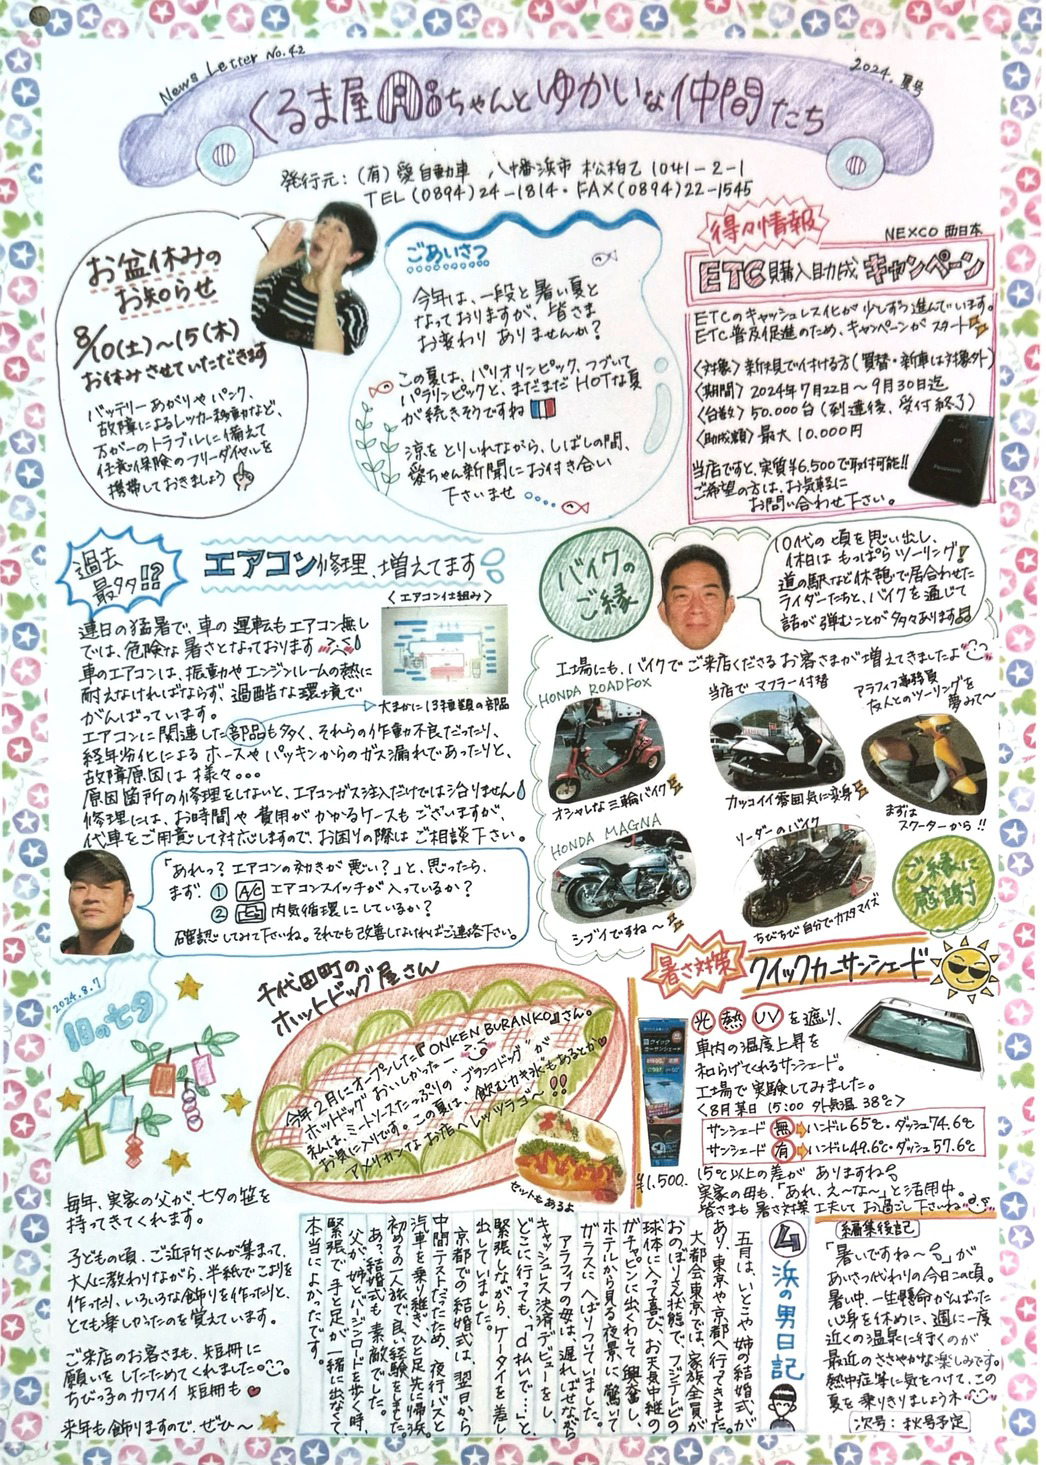 News Letter No.42
2024. 夏号
くるま屋Aiちゃんとゆかいな仲間たち
発行元：(有)愛自動車 八幡浜市 松柏乙1041-2-1
TEL(0894)24-1814・FAX(0894)22-1545
お盆休みの
お知らせ
8/10(土)～15(木)
お休みさせていただきます
バッテリーあがりやパンク、
故障によるレッカー移動など、
万が一のトラブルに備えて
任意保険のフリーダイヤルを
携帯しておきましょう
ごあいさつ
今年は、一段と暑い夏と
なっておりますが、皆さま
お変わりありませんか？
この夏は、パリオリンピック、つづいて
パラリンピックと、まだまだHOTな夏
が続きそうですね
涼をとりいれながら、しばしの間、
愛ちゃん新聞にお付き合い
下さいませ
得々情報
NEXCO 西日本
ETC購入助成キャンペーン
ETCのキャッシュレス化が少しずつ進んでいます。
ETC普及促進のため、キャンペーンがスタート
〈対象〉新規で付ける方(買替・新車は対象外)
〈期間〉2024年7月22日～9月30日迄
〈台数〉50,000台(到達後、受付終了)
〈助成額〉最大10,000円
当店ですと、実質¥6,500で取付可能!!
ご希望の方は、お気軽に
お問い合わせ下さい。
Panasonic
過去
最多!?
エアコン修理、増えてます
〈エアコン仕組み〉
連日の猛暑で、車の運転もエアコン無し
では、危険な暑さとなっております
車のエアコンは、振動やエンジンルームの熱に
耐えなければならず、過酷な環境で
がんばっています。
大まかに13種類の部品
エアコンに関連した部品も多く、それらの作動不良だったり、
経年劣化によるホースやパッキンからのガス漏れであったりと、
故障原因は様々…
原因箇所の修理をしないと、エアコンガス注入だけでは治りません
修理には、お時間や費用がかかるケースもございますが、
代車をご用意して対応しますので、お困りの際はご相談下さい。
「あれっ？エアコンの効きが悪い？」と、思ったら、
まず ① A/C エアコンスイッチが入っているか？
② 内気循環にしているか？
確認してみて下さいね。それでも改善しなければご連絡下さい。
バイクの
ご縁
10代の頃を思い出し、
休日はもっぱらツーリング!
道の駅など休憩で居合わせた
ライダーたちと、バイクを通じて
話が弾むことが多々あります
工場にも、バイクでご来店くださるお客さまが増えてきましたよ
HONDA ROADFOX
オシャレな三輪バイク
当店でマフラー付替
カッコイイ雰囲気に変身
アラフィフ事務員
友人とのツーリングを
夢みて～
まずは
スクーターから!!
HONDA MAGNA
シブイですね～
リーダーのバイク
ちびちび自分でカスタマイズ
ご縁に
感謝
2024.8.7
旧の七夕
毎年、実家の父が、七夕の笹を
持ってきてくれます。
子どもの頃、ご近所さんが集まって、
大人に教わりながら、半紙でこよりを
作ったり、いろいろな飾りを作ったりと、
とても楽しかったのを覚えています。
ご来店のお客さまも、短冊に
願いをしたためてくれました。
ちびっ子のカワイイ短冊も
来年も飾りますので、ぜひ～
千代田町の
ホットドッグ屋さん
今年2月にオープンした『ONKEN BURANKO』さん。
ホットドッグおいしかったー
私は、ミートソースたっぷりの“ブランコドッグ”が
お気に入りです。この夏は、飲むカキ氷もあるとか
アメリカンなお店へレッツラゴ～!!
セットもあるよ
暑さ対策
クイックカーサンシェード
光 熱 UVを遮り、
車内の温度上昇を
和らげてくれるサンシェード。
工場で実験してみました。
〈8月某日 15:00 外気温38℃〉
サンシェード無 ハンドル65℃・ダッシュ74.6℃
サンシェード有 ハンドル49.6℃・ダッシュ57.6℃
クイック
カーサンシェード
¥1,500.
15℃以上の差がありますね
実家の母も、「あれ、え～な～」と活用中。
皆さまも暑さ対策工夫してお過ごし下さいね
④浜の男日記
五月は、いとこや姉の結婚式が
あり、東京や京都へ行ってきました。
大都会東京では、家族全員が
おのぼりさん状態で、フジテレビの
球体に入って喜び、お天気中継の
ガチャピンに出くわして興奮し、
ホテルから見る夜景に、驚いて
ガラスにへばりついていました。
アラフィフの母は、遅ればせながら
キャッシュレス決済デビューをし、
どこに行っても、「d払いで…」と、
緊張しながら、ケータイを差し
出していました。
京都での結婚式は、翌日から
中間テストだったため、夜行バスと
汽車を乗り継ぎひと足先に帰浜。
初めての一人旅で、良い経験をしました。
あっ、結婚式も、素敵でした。
父が、姉とバージンロードを歩く時、
緊張で、手と足が一緒に出なくて、
本当によかったです。
編集後記
「暑いですね～」が
あいさつ代わりの今日この頃。
暑い中、一生懸命がんばった
心身を休めに、週に一度
近くの温泉に行くのが
最近のささやかな楽しみです。
熱中症等に気をつけて、この
夏を乗りきりましょうネ
次号：秋号予定